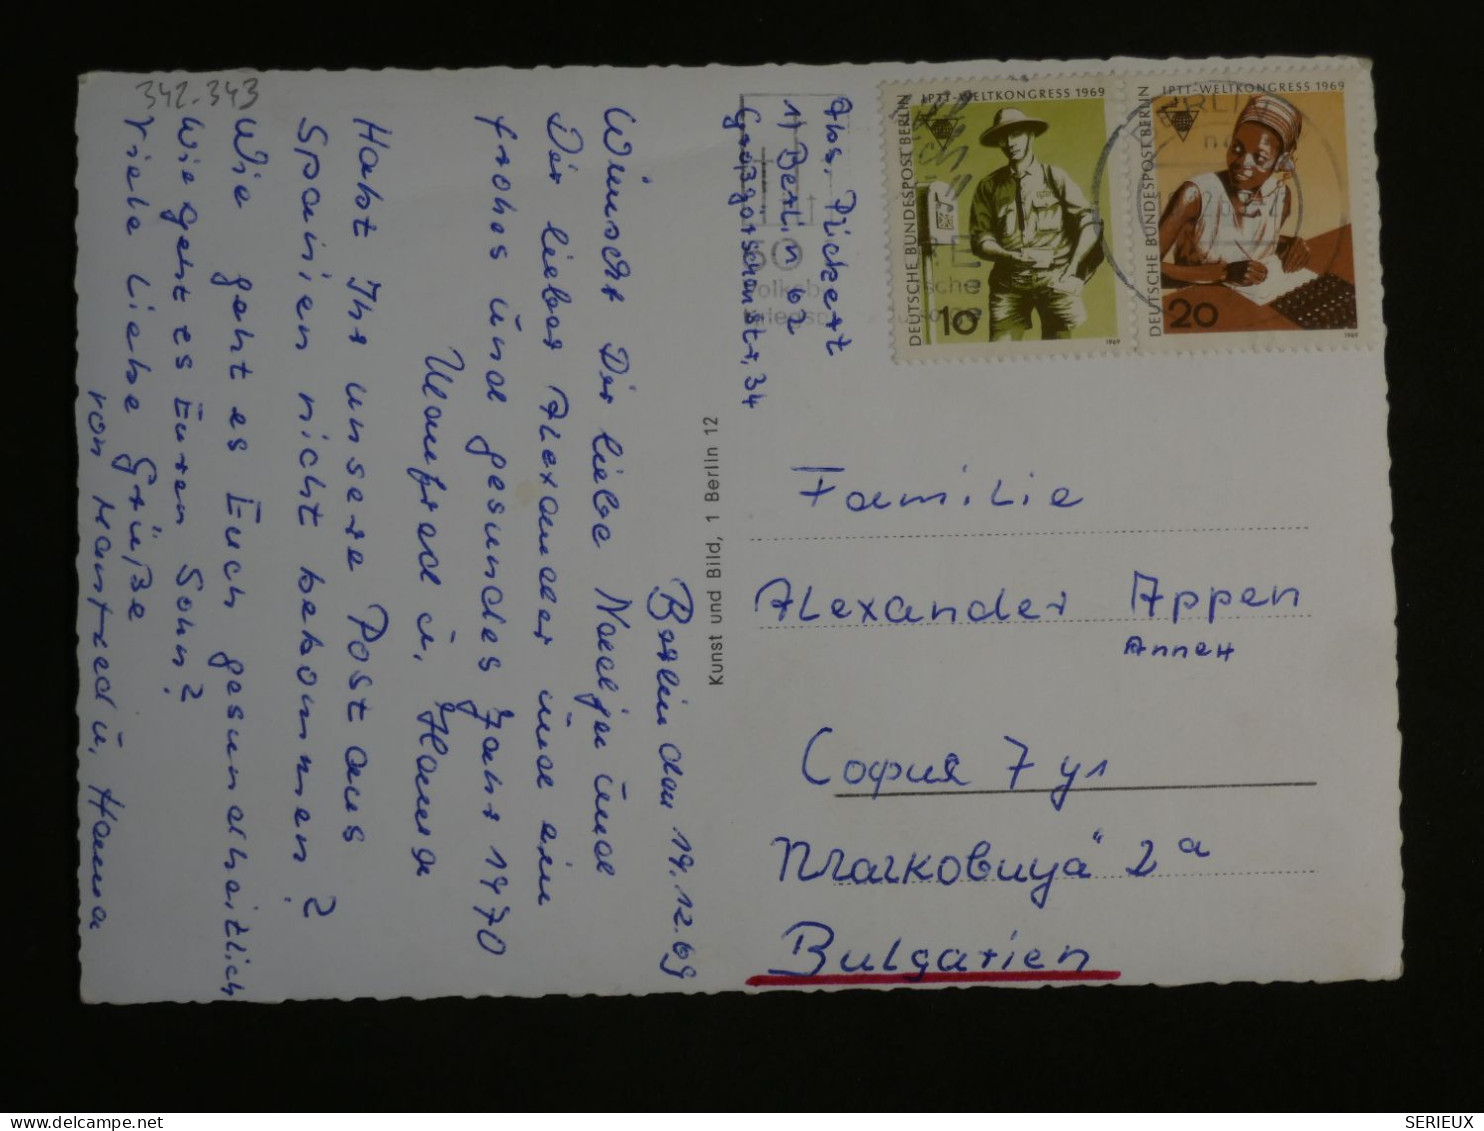 342-343
Berlin den 19.12.69
Wünscht Dir liebe Nadja und
Dir lieber Alexander und ein
frohes und gesundes Jahr 1970
Manfred u. Hanna
Habt Ihr unsere Post aus
Spanien nicht bekommen?
Wie geht es Euch gesundheitlich
Wie geht es Euren Sohn?
Viele liebe Grüße
von Manfred u. Hanna
Kunst und Bild, 1 Berlin 12
Abs. Pickert
1) Berlin 62
Großgörschenstr. 34
IPTT-WELTKONGRESS 1969
DEUTSCHE BUNDESPOST BERLIN
10
1969
IPTT-WELTKONGRESS 1969
DEUTSCHE BUNDESPOST BERLIN
20
1969
BERLIN
Familie
Alexander Appen
Аппен
София 7 ул
Bulgarien
SERIEUX